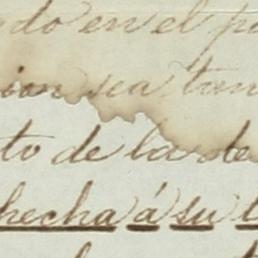 do en el p
ion sea tan
to de la de
hecha á su t